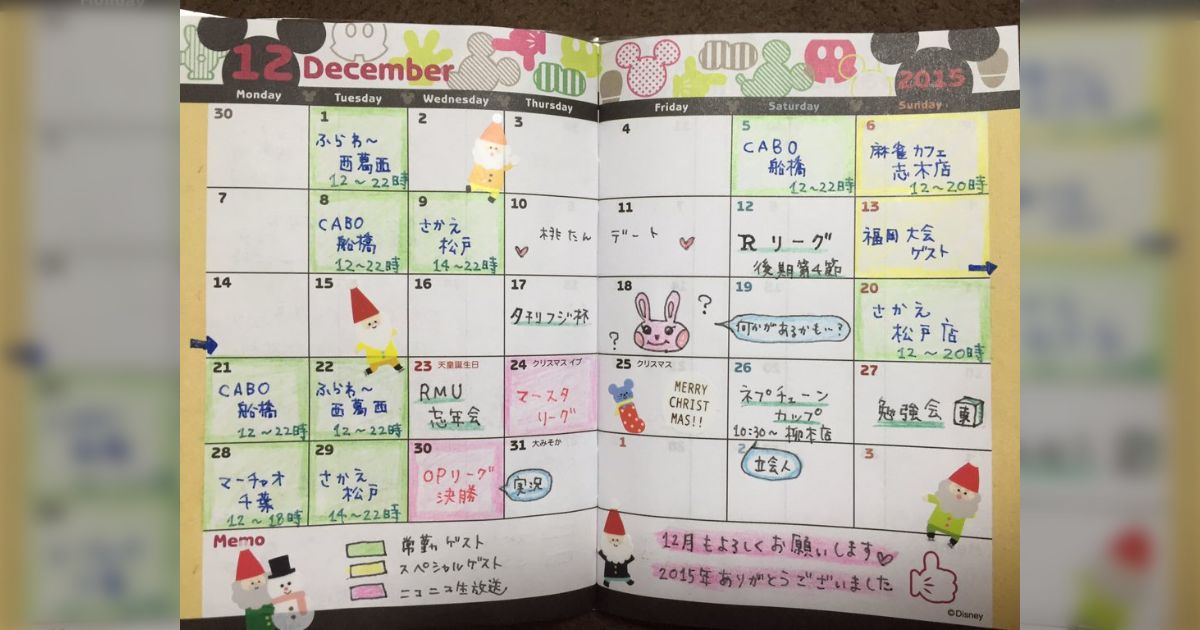 12 December
2015
Monday Tuesday Wednesday Thursday Friday Saturday Sunday
30
1
ふらわ～
西葛西
12～22時
2
3
4
5
CABO
船橋
12～22時
6
麻雀カフェ
志木店
12～20時
7
8
CABO
船橋
12～22時
9
さかえ
松戸
14～22時
10
桃たん
11
デート
12
Rリーグ
後期第4節
13
福岡大会
ゲスト
14
15
16
17
夕刊フジ杯
18
?
?
19
何かがあるかも…?
20
さかえ
松戸店
12～20時
21
CABO
船橋
12～22時
22
ふらわ～
西葛西
12～22時
23 天皇誕生日
RMU
忘年会
24 クリスマスイブ
マースタ
リーグ
25 クリスマス
MERRY
CHRIST
MAS!!
26
ネプチューン
カップ
10:30～ 柳本店
27
勉強会
東
28
マーチャオ
千葉
12～18時
29
さかえ
松戸
14～22時
30
OPリーグ
決勝
31 大みそか
実況
1
2
立会人
3
Memo
常勤ゲスト
スペシャルゲスト
ニコニコ生放送
12月もよろしくお願いします
2015年ありがとうございました
©Disney